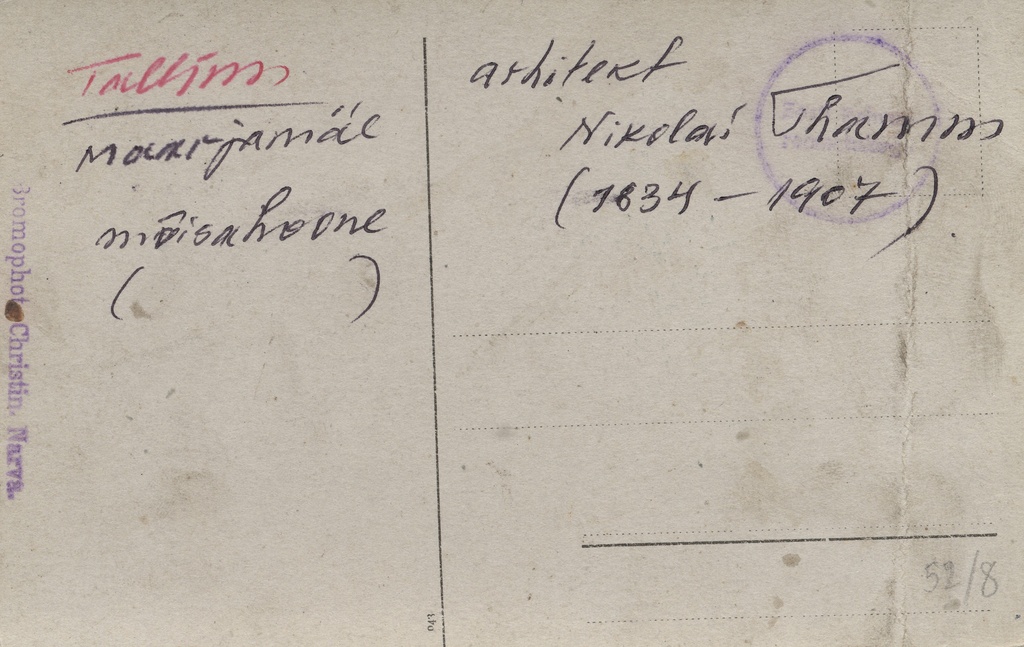 Tallinn
Maarjamäe
mõisahoone
( )
arhitekt
Nikolai Thamm
(1834 – 1907).
Bromophot Christin. Narva.
943
52/8